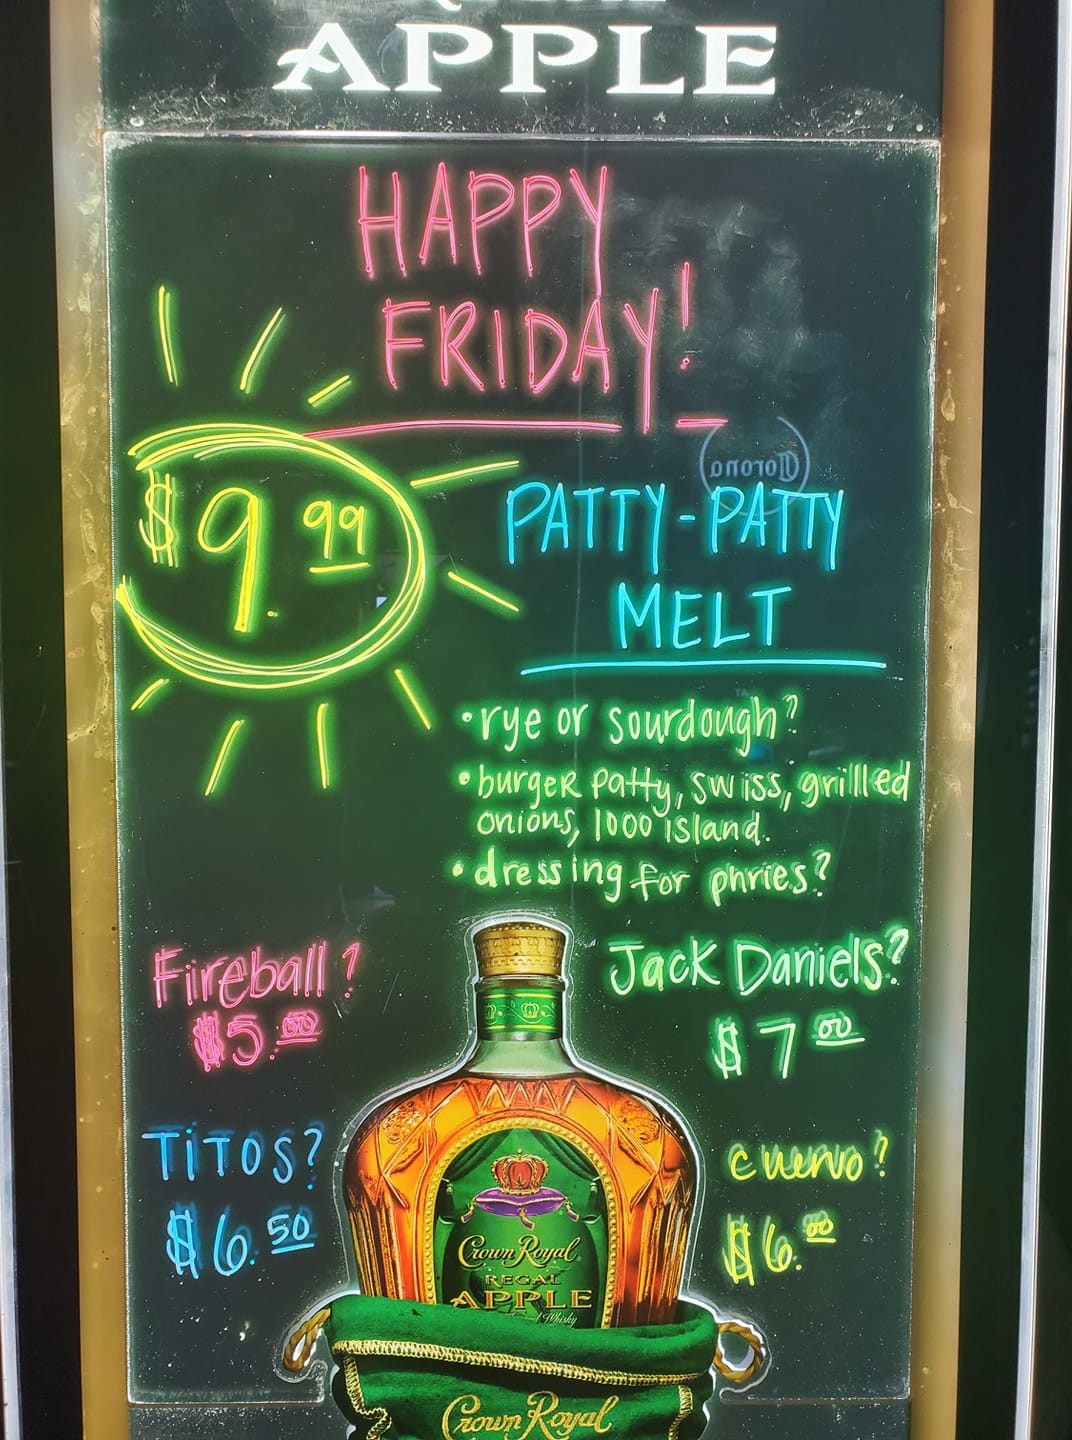 APPLE
HAPPY
FRIDAY!
$9.99
PATTY-PATTY
MELT
Corona
• rye or sourdough?
• burger patty, swiss, grilled
onions, 1000 island.
• dressing for phries?
Fireball?
$5.00
Jack Daniels?
$7 00
TiTOS?
$6.50
cuervo?
$6.00
Crown Royal
REGAL
APPLE
Whisky
Crown Royal